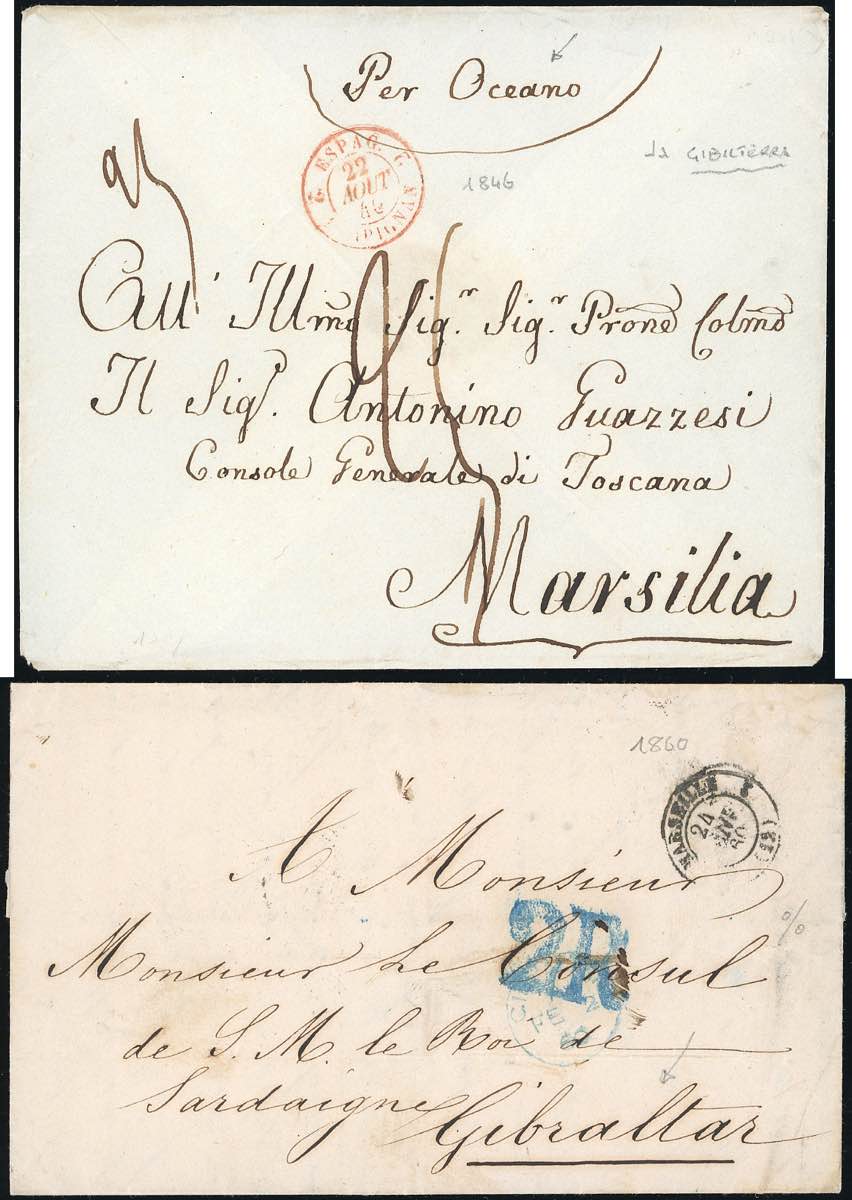 Per Oceano
da GIBILTERRA
2 ESPAG. G
22
AOUT
46
PIGNAN
1846
All' Illmo Sigr. Sigr. Prone Colmo
Il Sigr. Antonino Guazzesi
Console Generale di Toscana
Marsilia
1860
MARSEILLE
24
60
A Monsieur
%
Monsieur Le Consul
2R
de S. M. le Roi de
Sardaigne
Gibraltar